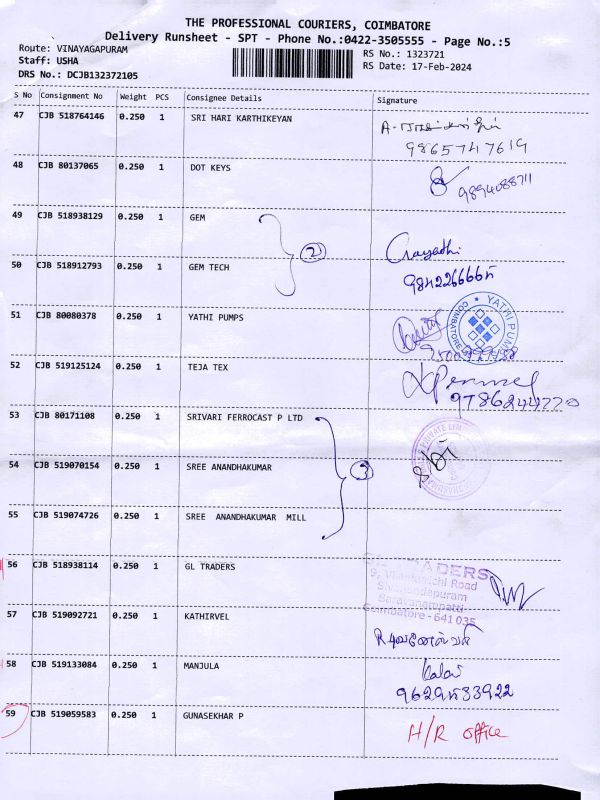 THE PROFESSIONAL COURIERS, COIMBATORE
Delivery Runsheet - SPT - Phone No.:0422-3505555 - Page No.:5
Route: VINAYAGAPURAM
RS No.: 1323721
Staff: USHA
RS Date: 17-Feb-2024
DRS No.: DCJB132372105
S No Consignment No Weight PCS Consignee Details Signature
47 CJB 518764146 0.250 1 SRI HARI KARTHIKEYAN
9865747619
48 CJB 80137065 0.250 1 DOT KEYS
9894088711
49 CJB 518938129 0.250 1 GEM
2
Gayathri
50 CJB 518912793 0.250 1 GEM TECH
9842266665
51 CJB 80080378 0.250 1 YATHI PUMPS
YATHI PUM
COIMBATORE
52 CJB 519125124 0.250 1 TEJA TEX
9786244770
53 CJB 80171108 0.250 1 SRIVARI FERROCAST P LTD
PRIVATE LIM
54 CJB 519070154 0.250 1 SREE ANANDHAKUMAR
3
55 CJB 519074726 0.250 1 SREE ANANDHAKUMAR MILL
56 CJB 518938114 0.250 1 GL TRADERS
GL TRADERS
9, Vilankurichi Road
Sivanandapuram
Saravanampatti
Coimbatore - 641 035
57 CJB 519092721 0.250 1 KATHIRVEL
58 CJB 519133084 0.250 1 MANJULA
Kalai
9629533922
59 CJB 519059583 0.250 1 GUNASEKHAR P
H/R office